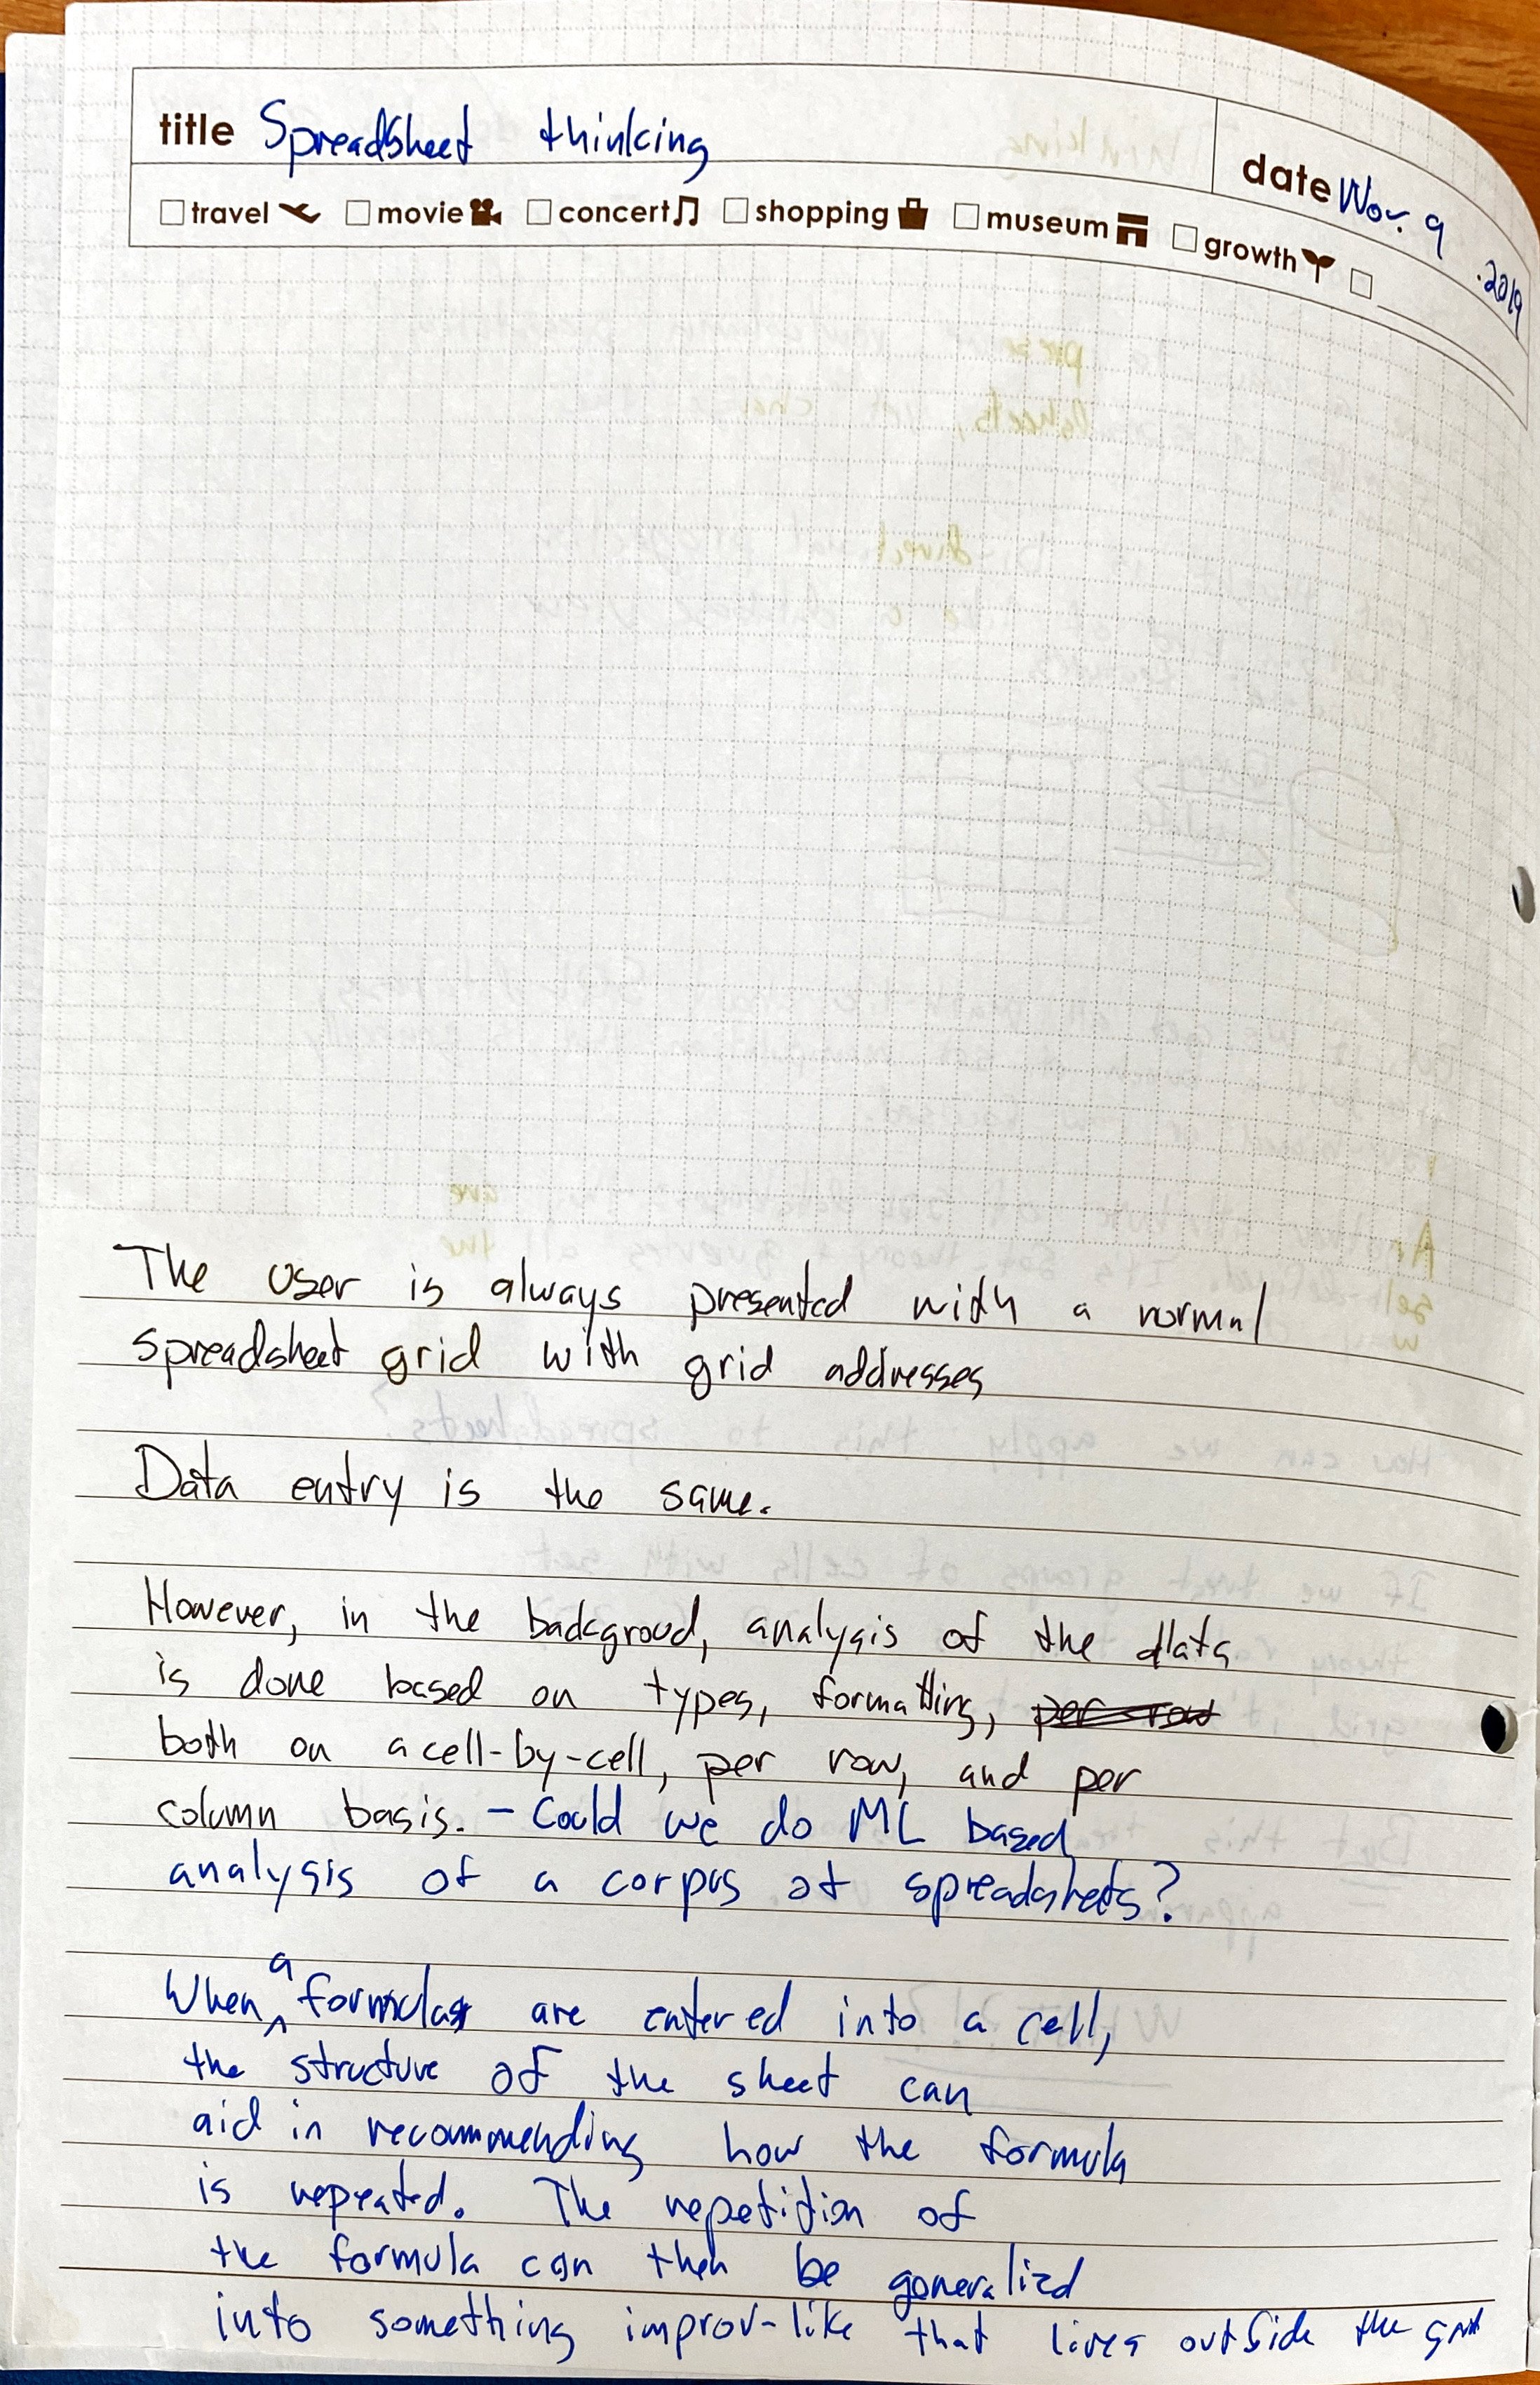 title Spreadsheet thinking
date Nov. 9 .2019
travel movie concert shopping museum growth
The user is always presented with a normal
spreadsheet grid with grid addresses
Data entry is the same.
However, in the backgroud, analysis of the data
is done based on types, formatting, per row
both on a cell-by-cell, per row, and per
column basis. - Could we do ML based
analysis of a corpus of spreadsheets?
When a formula are entered into a cell,
the structure of the sheet can
aid in recommending how the formula
is repeated. The repetition of
the formula can then be generalized
into something improv-like that lives outside the grid